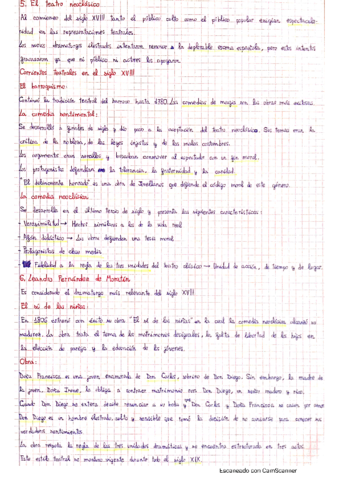 5. El teatro neoclásico.
Al comienzo del siglo XVIII tanto el público culto como el público popular exigían espectacula-
ridad en las representaciones teatrales.
Los nuevos dramaturgos ilustrados intentaron renovar la deplorable escena española, pero este intento
fracasaron ya que ni público ni actores los apoyaron.
Corrientes teatrales en el siglo XVIII
El barroquismo:
Continuó la tradición teatral del barroco hasta 1780. Las comedias de magia son las obras más exitosas.
La comedia sentimental:
Se desarrolló a finales de siglo y dio paso a la aceptación del teatro neoclásico. Sus temas eran la
crítica de la nobleza, de las leyes injustas y de las malas costumbres.
Los argumentos eran sencillos y buscaban conmover al espectador con un fin moral.
Los protagonistas defendían la tolerancia, la fraternidad y la caridad.
"El delincuente honrado" es una obra de Jovellanos que defiende el código moral de este género.
La comedia neoclásica.
Se desarrolla en el último tercio de siglo y presenta las siguientes características:
- Verosimilitud → Hechos similares a los de la vida real
- Afán didáctico → Las obras defienden una tesis moral
- Protagonistas de clase media
- Fidelidad a la regla de las tres unidades del teatro clásico → Unidad de acción, de tiempo y de lugar.
6. Leandro Fernández de Moratín
Es considerado el dramaturgo más relevante del siglo XVIII
El sí de las niñas:
En 1806 estrenó con éxito su obra "El sí de las niñas" en la cual la comedia neoclásica alcanzó su
madurez. La obra trata el tema de los matrimonios desiguales, la falta de libertad de las hijas en
la elección de pareja y la educación de los jóvenes.
Obra:
Doña Francisca es una joven enamorada de Don Carlos, sobrino de Don Diego. Sin embargo, la madre de
la joven, Doña Irene, la obliga a contraer matrimonio con Don Diego, un señor maduro y rico.
Cuando Don Diego se entera decide renunciar a su boda y que Don Carlos y Doña Francisca se casen por amor
Don Diego es un hombre ilustrado, culto y sensible que tomó la decisión de su concierto para amparar los
verdaderos sentimientos
La obra respeta la regla de las tres unidades dramáticas y se encuentra estructurada en tres actos.
Este estilo teatral se mantuvo vigente durante todo el siglo XIX.
Escaneado con CamScanner